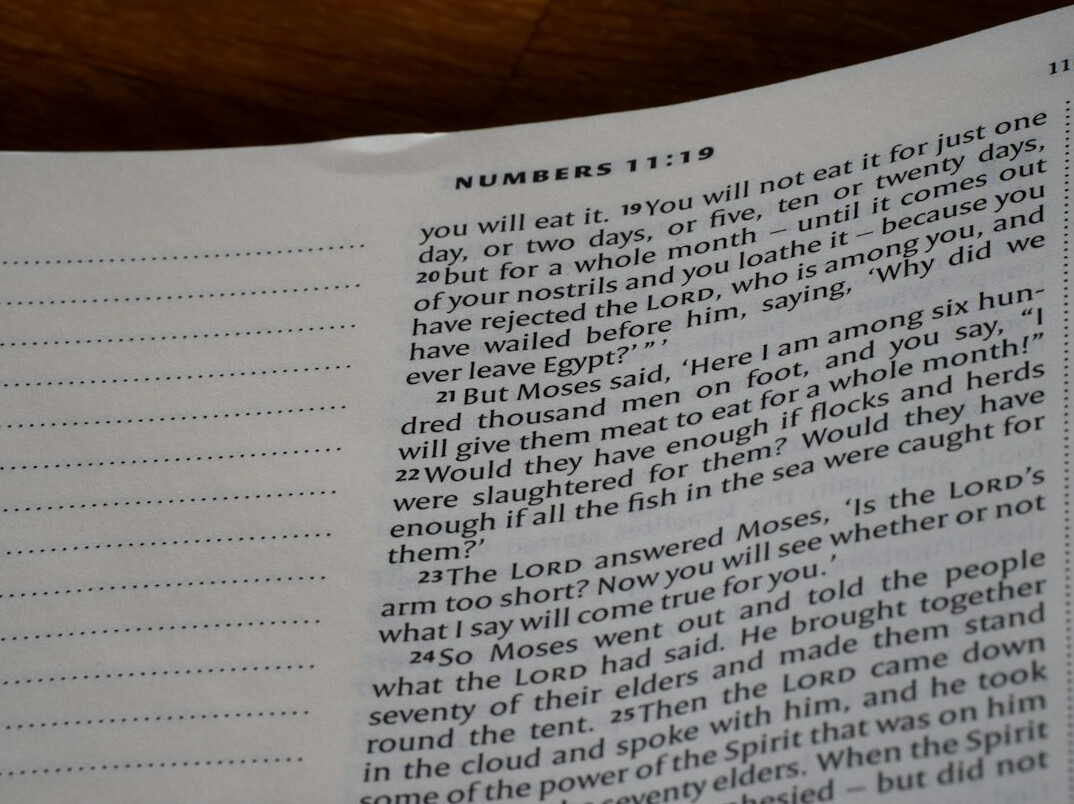 11
NUMBERS 11:19
you will eat it. 19You will not eat it for just one
day, or two days, or five, ten or twenty days,
20but for a whole month – until it comes out
of your nostrils and you loathe it – because you
have rejected the LORD, who is among you, and
have wailed before him, saying, ‘Why did we
ever leave Egypt?’ ” ’
21But Moses said, ‘Here I am among six hun-
dred thousand men on foot, and you say, “I
will give them meat to eat for a whole month!”
22Would they have enough if flocks and herds
were slaughtered for them? Would they have
enough if all the fish in the sea were caught for
them?’
23The LORD answered Moses, ‘Is the LORD’s
arm too short? Now you will see whether or not
what I say will come true for you.’
24So Moses went out and told the people
what the LORD had said. He brought together
seventy of their elders and made them stand
round the tent. 25Then the LORD came down
in the cloud and spoke with him, and he took
some of the power of the Spirit that was on him
seventy elders. When the Spirit
– but did not